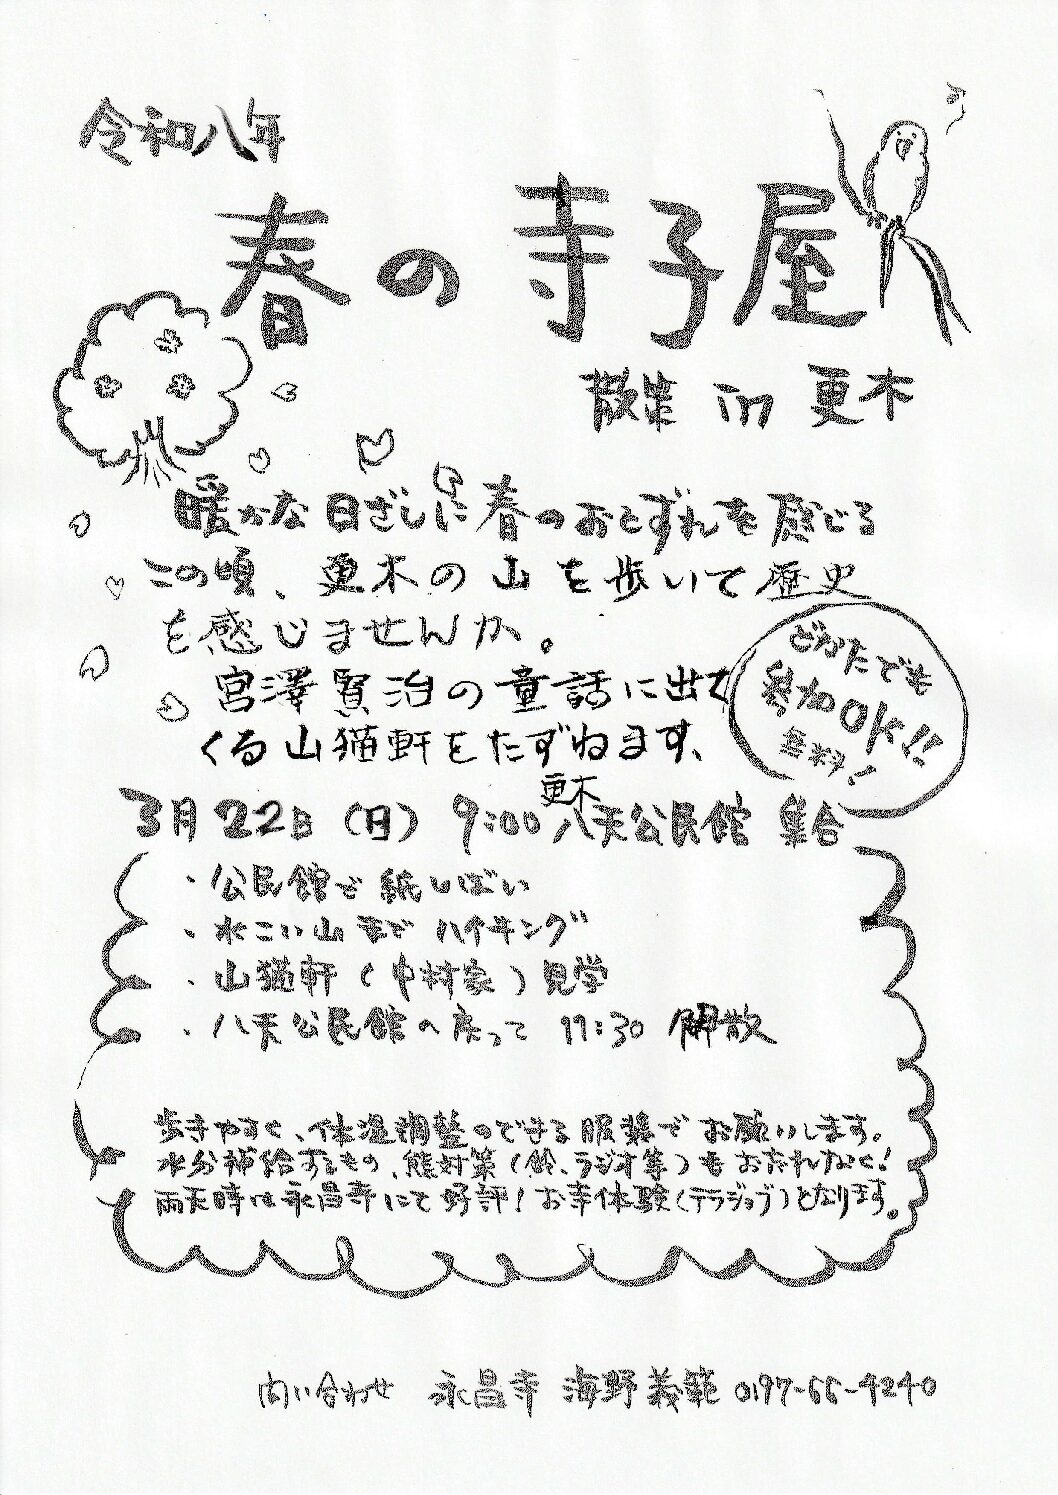 令和八年
春の寺子屋
散策 in 更木
暖かな日ざしに春のおとずれを感じる
この頃、更木の山を歩いて歴史
を感じませんか。
宮澤賢治の童話に出て
くる山猫軒をたずねます、
どなたでも
参加OK!!
無料!
3月22日(日) 9:00 更木八天公民館 集合
・公民館で紙しばい
・水こい山までハイキング
・山猫軒(中村家)見学
・八天公民館へ戻って 11:30 解散
歩きやすく、体温調整のできる服装でお願いします。
水分補給するもの、熊対策(鈴、ラジオ等)もお忘れなく!
雨天時は永昌寺にて好評!お寺体験(テラジョブ)となります。
問い合わせ 永昌寺 海野義範 0197-66-4240